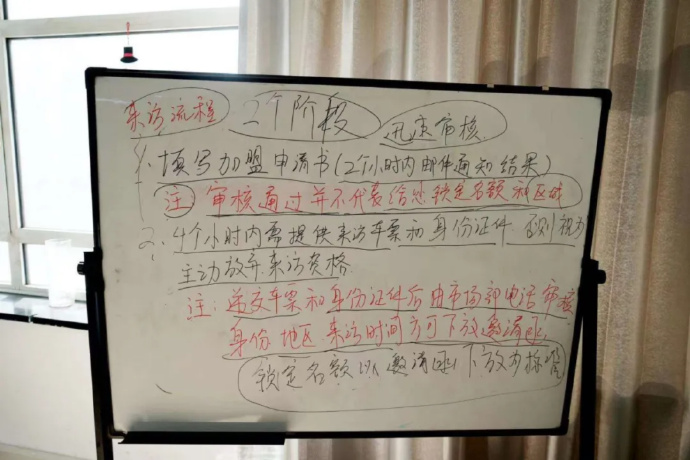 来访流程 2个阶段 迅速审核
1. 填写加盟申请书(2个小时内邮件通知结果)
注: 审核通过并不代表给您锁定名额和区域
2. 4个小时内需提供来访车票和身份证件 否则视为
主动放弃来访资格
注: 递交车票和身份证件后由市场部电话审核
身份 地区 来访时间方可下放邀请函
锁定名额以邀请函下放为标准